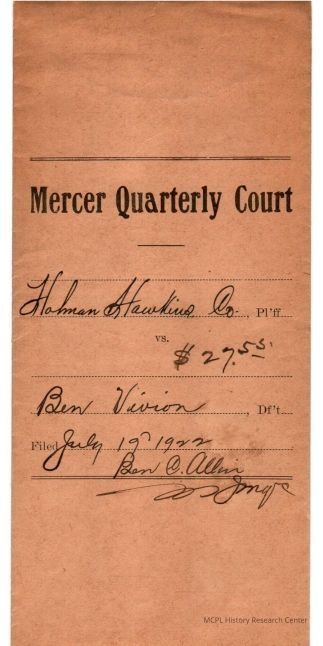 Mercer Quarterly Court
Holman Hawkins Co., Pl'ff
vs.
$27.55
Ben Vivion, Df't.
Filed July 19" 1922
Ben C. Allin
MCPL History Research Center